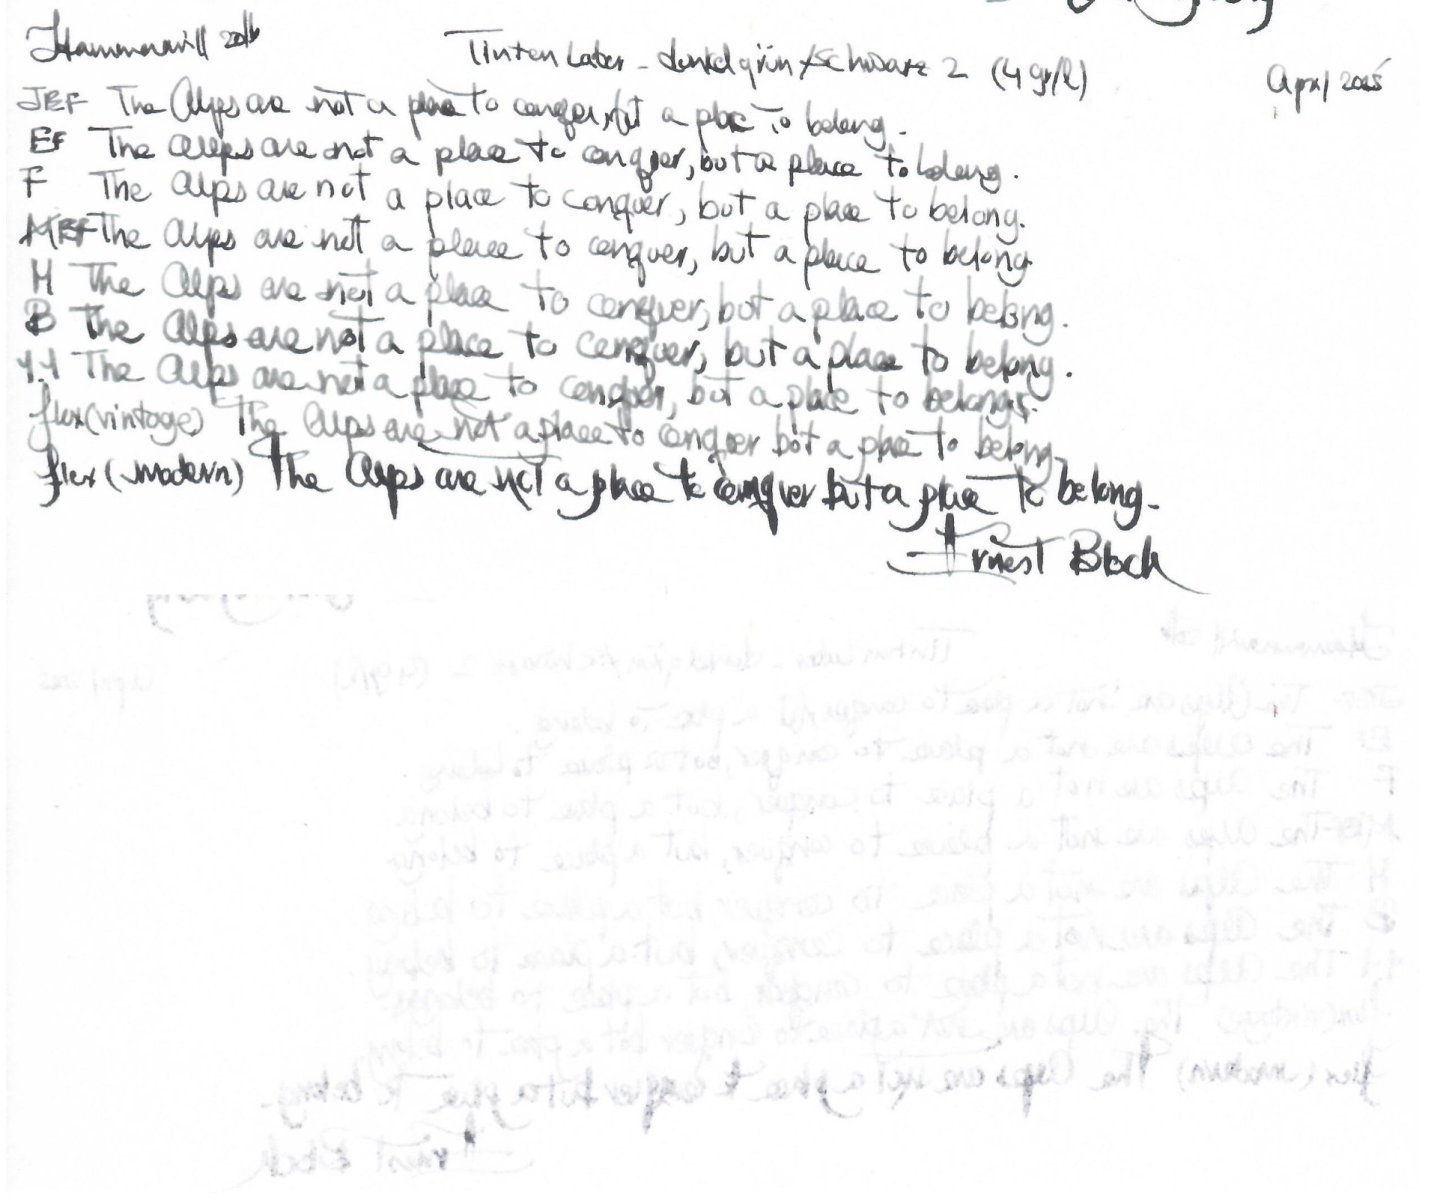 Hammermill 20lb
Tintenlabor - dunkelgrün/schwarz 2 (4 gr/l)
April 2025
JEF The Alps are not a place to conquer, but a place to belong.
EF The Alps are not a place to conquer, but a place to belong.
F The Alps are not a place to conquer, but a place to belong.
MEF The Alps are not a place to conquer, but a place to belong.
M The Alps are not a place to conquer, but a place to belong.
B The Alps are not a place to conquer, but a place to belong.
1.1 The Alps are not a place to conquer, but a place to belong.
flex (vintage) The Alps are not a place to conquer but a place to belong.
flex (modern) The Alps are not a place to conquer but a place to belong.
Ernest Bloch